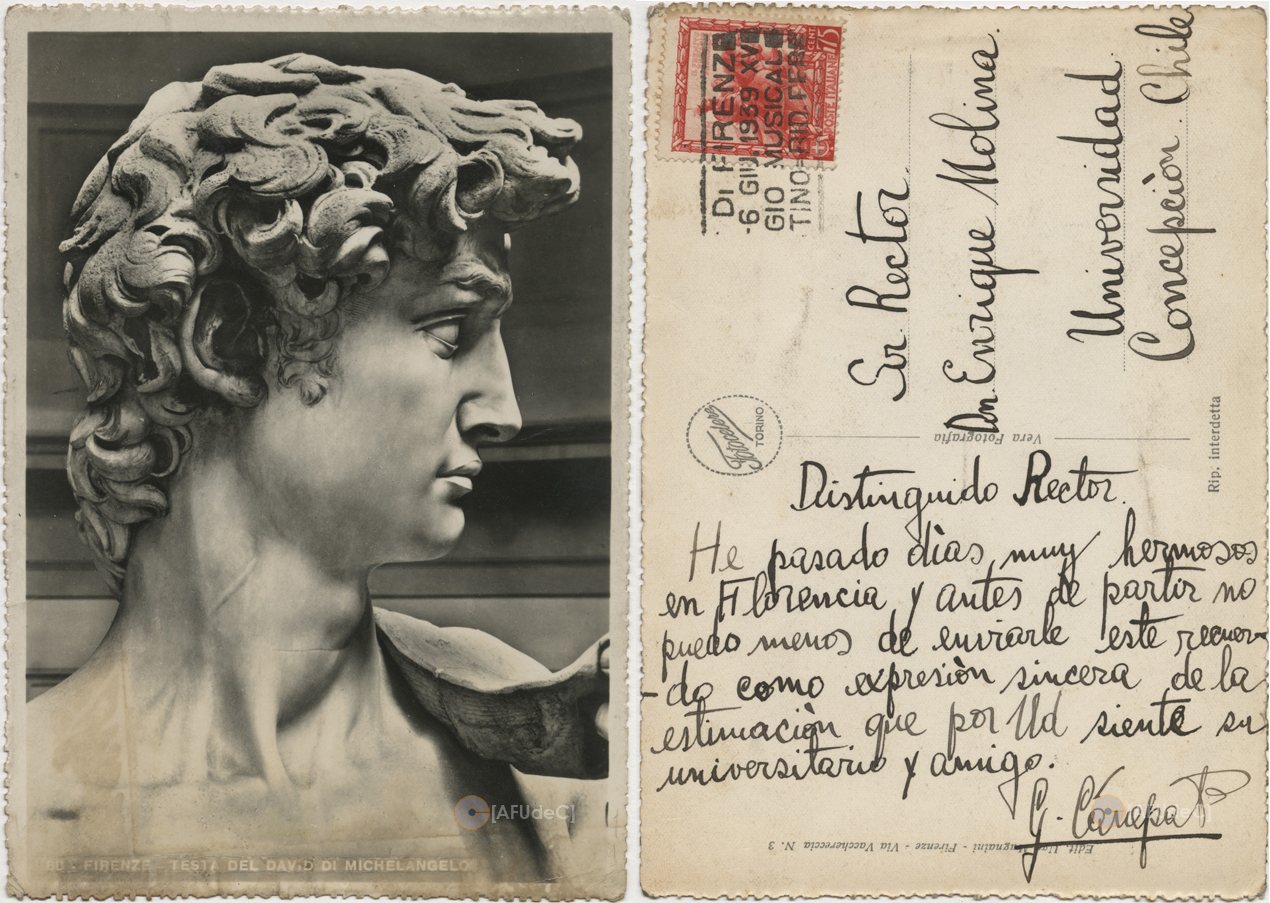 60 - FIRENZE - TESTA DEL DAVID DI MICHELANGELO
[AFUdeC]
POSTE ITALIANE
75
CENT
DI FIRENZE
-6 GIU 1939 XVII
GIO MUSICALE
TINO=RID.FERR
Sor Rector
Dn. Enrique Molina.
Universidad
Concepciòn. Chile
TORINO
Vera Fotografia
Rip. interdetta
Distinguido Rector.
He pasado dìas muy hermosos
en Florencia y antes de partir no
puedo menos de enviarle este recuer-
-do como expresiòn sincera de la
estimaciòn que por Ud siente su
universitario y amigo.
G. Cánepa
Edit. Mugnaini - Firenze - Via Vacchereccia N. 3